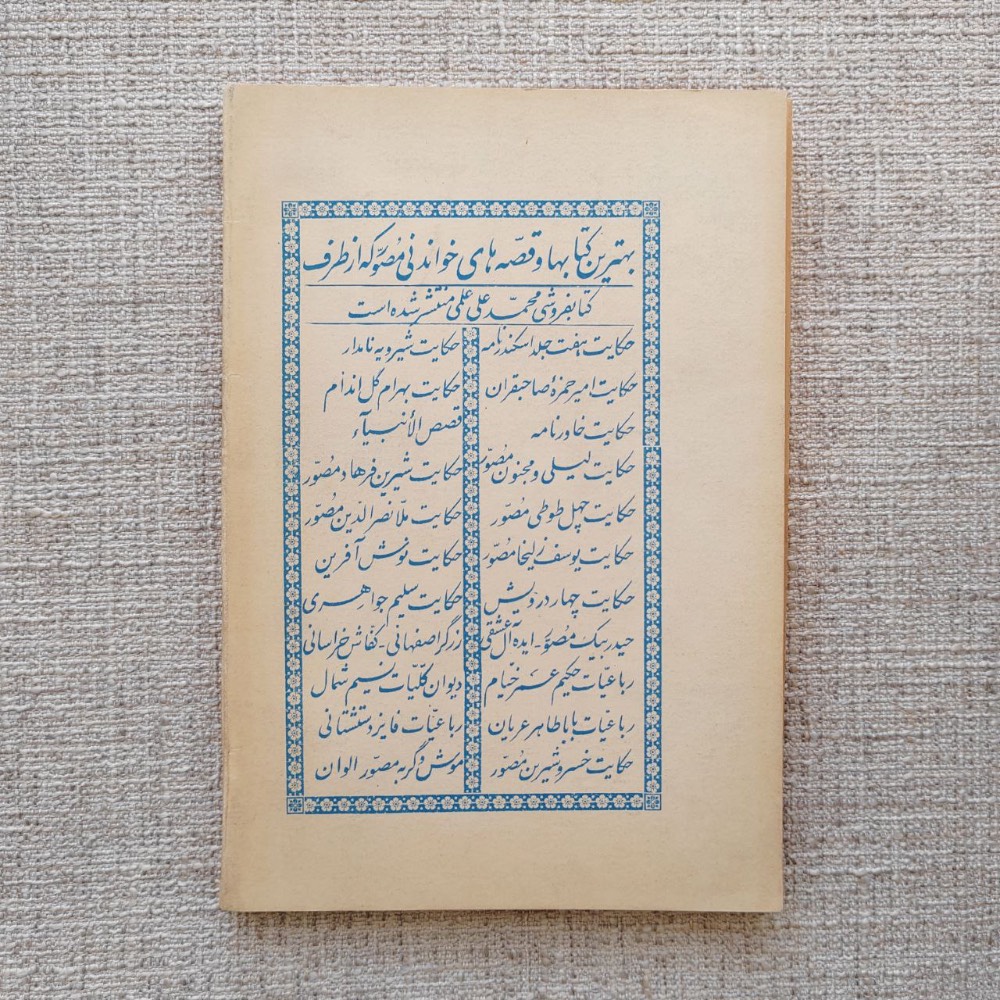 بهترین کتابها و قصّه های خواندنی مُصوّر که از طرف
کتابفروشی محمّد علی علمی منتشر شده است
حکایت هفت جلد اسکندرنامه
حکایت امیر حمزهٔ صاحبقران
حکایت خاورنامه
حکایت لیلی و مجنون مُصوّر
حکایت چهل طوطی مُصوّر
حکایت یوسف زلیخا مُصوّر
حکایت چهار درویش
حیدربیک مُصوّر - ایده آل عشقی
رباعیّات حکیم عمر خیّام
رباعیّات باباطاهر عریان
حکایت خسرو شیرین مُصوّر
حکایت شیرویه نامدار
حکایت بهرام گل اندام
قصص الأنبیآء
حکایت شیرین فرهاد مُصوّر
حکایت ملّا نصرالدّین مُصوّر
حکایت نوش آفرین
حکایت سلیم جواهری
زرگر اصفهانی - کفّاش خراسانی
دیوان کلّیات نسیم شمال
رباعیّات فایز دشتستانی
موش و گربه مصوّر الوان